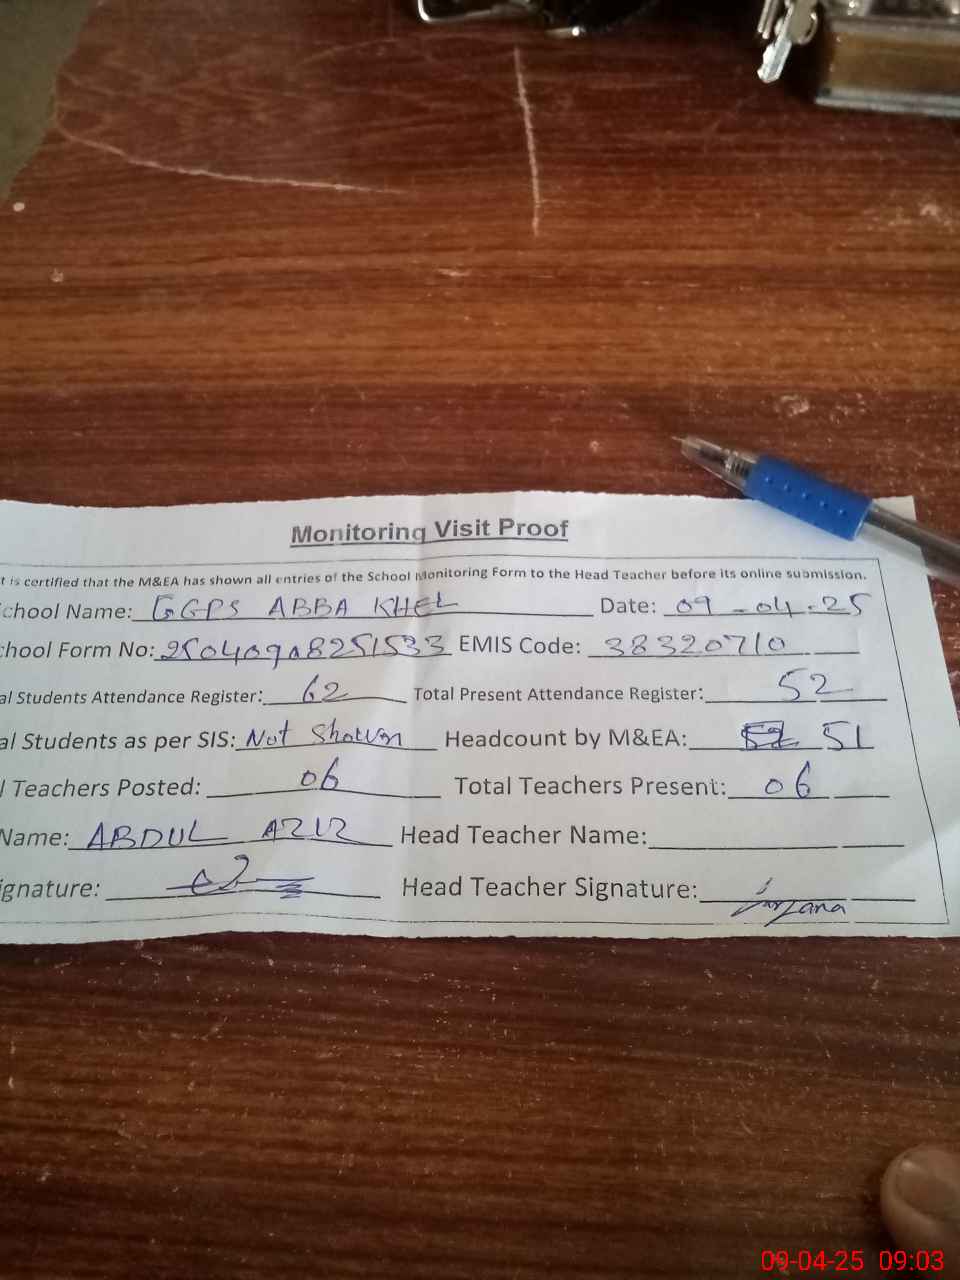 Monitoring Visit Proof
t is certified that the M&EA has shown all entries of the School Monitoring Form to the Head Teacher before its online submission.
chool Name: GGPS ABBA KHEL Date: 09-04-25
hool Form No: 250409a8251533 EMIS Code: 38320710
al Students Attendance Register: 62 Total Present Attendance Register: 52
al Students as per SIS: Not Shown Headcount by M&EA: 51
l Teachers Posted: 06 Total Teachers Present: 06
Name: ABDUL AZIZ Head Teacher Name:
ignature: Head Teacher Signature: Farzana
09-04-25 09:03